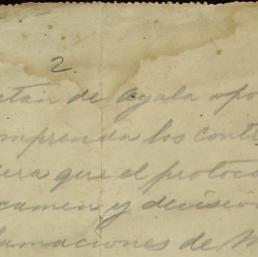 2.
ctan de Ayala apo
omprenda los contr
era que el protoco
camen y decisión
lamaciones de M